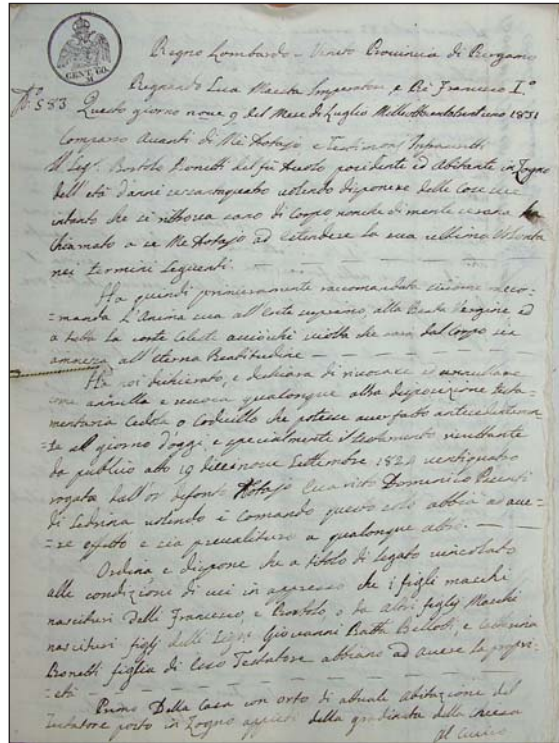 CENT. 60.
M
Regno Lombardo - Veneto Provincia di Bergamo
Regnando Sua Maestà Imperatore, e Ré Francesco I.°
N° 583 Questo giorno nove 9 del Mese di Luglio Mille ottocentotrentuno 1831
Comparso Avanti di Mè Notajo e Testimonj Infrascritti
Il Sig.r Bortolo Bonetti del fù possidente ed Abitante in Zogno
dell'età d'anni sessantaquatro volendo disponere delle Cose sue
intanto che si ritrova sano di Corpo nonche di mente
Chiamato a se Mè Notajo ad estendere la sua Volontà
nei termini Seguenti. —
Ha quindi primieramente raccomandata siccome racco-
=manda L'Anima sua all'Ente supremo, alla Beata Vergine ed
a tutta la corte Celeste acciochè sciolta che sarà dal Corpo sia
amessa all'eterna Beatitudine —
Ha poi dichiarato, e dichiara di rivocare ed annullare
come annulla e revoca qualonque altra disposizione testa-
mentaria Cedola o Codicillo che potesse aver fatto antecedentemen-
=te al giorno d'oggi e specialmente il testamento risultante
da publico atto 19 diecinove Settembre 1824 ventiquatro
rogato dall'or defonto Notajo Domenico
di Sedrina volendo e Comando questo solo abbia ad ave-
=re effetto e sia prevalituro a qualonque altro. —
Ordina e dispone che a titolo di legato vincolato
alle condizione di cui in appresso che i figli maschi
nascituri delli Francesco, e Bortolo, o da altri figlj Maschi
nascituri figlj delli Giovanni Batta Bellotti, e Catterina
Bonetti figlia di Esso Testatore abbiano ad avere la propri-
=età —
Primo Della Casa con orto di attuale Abitazione del
Testatore posto in Zogno appiedi della gradinata della chiesa